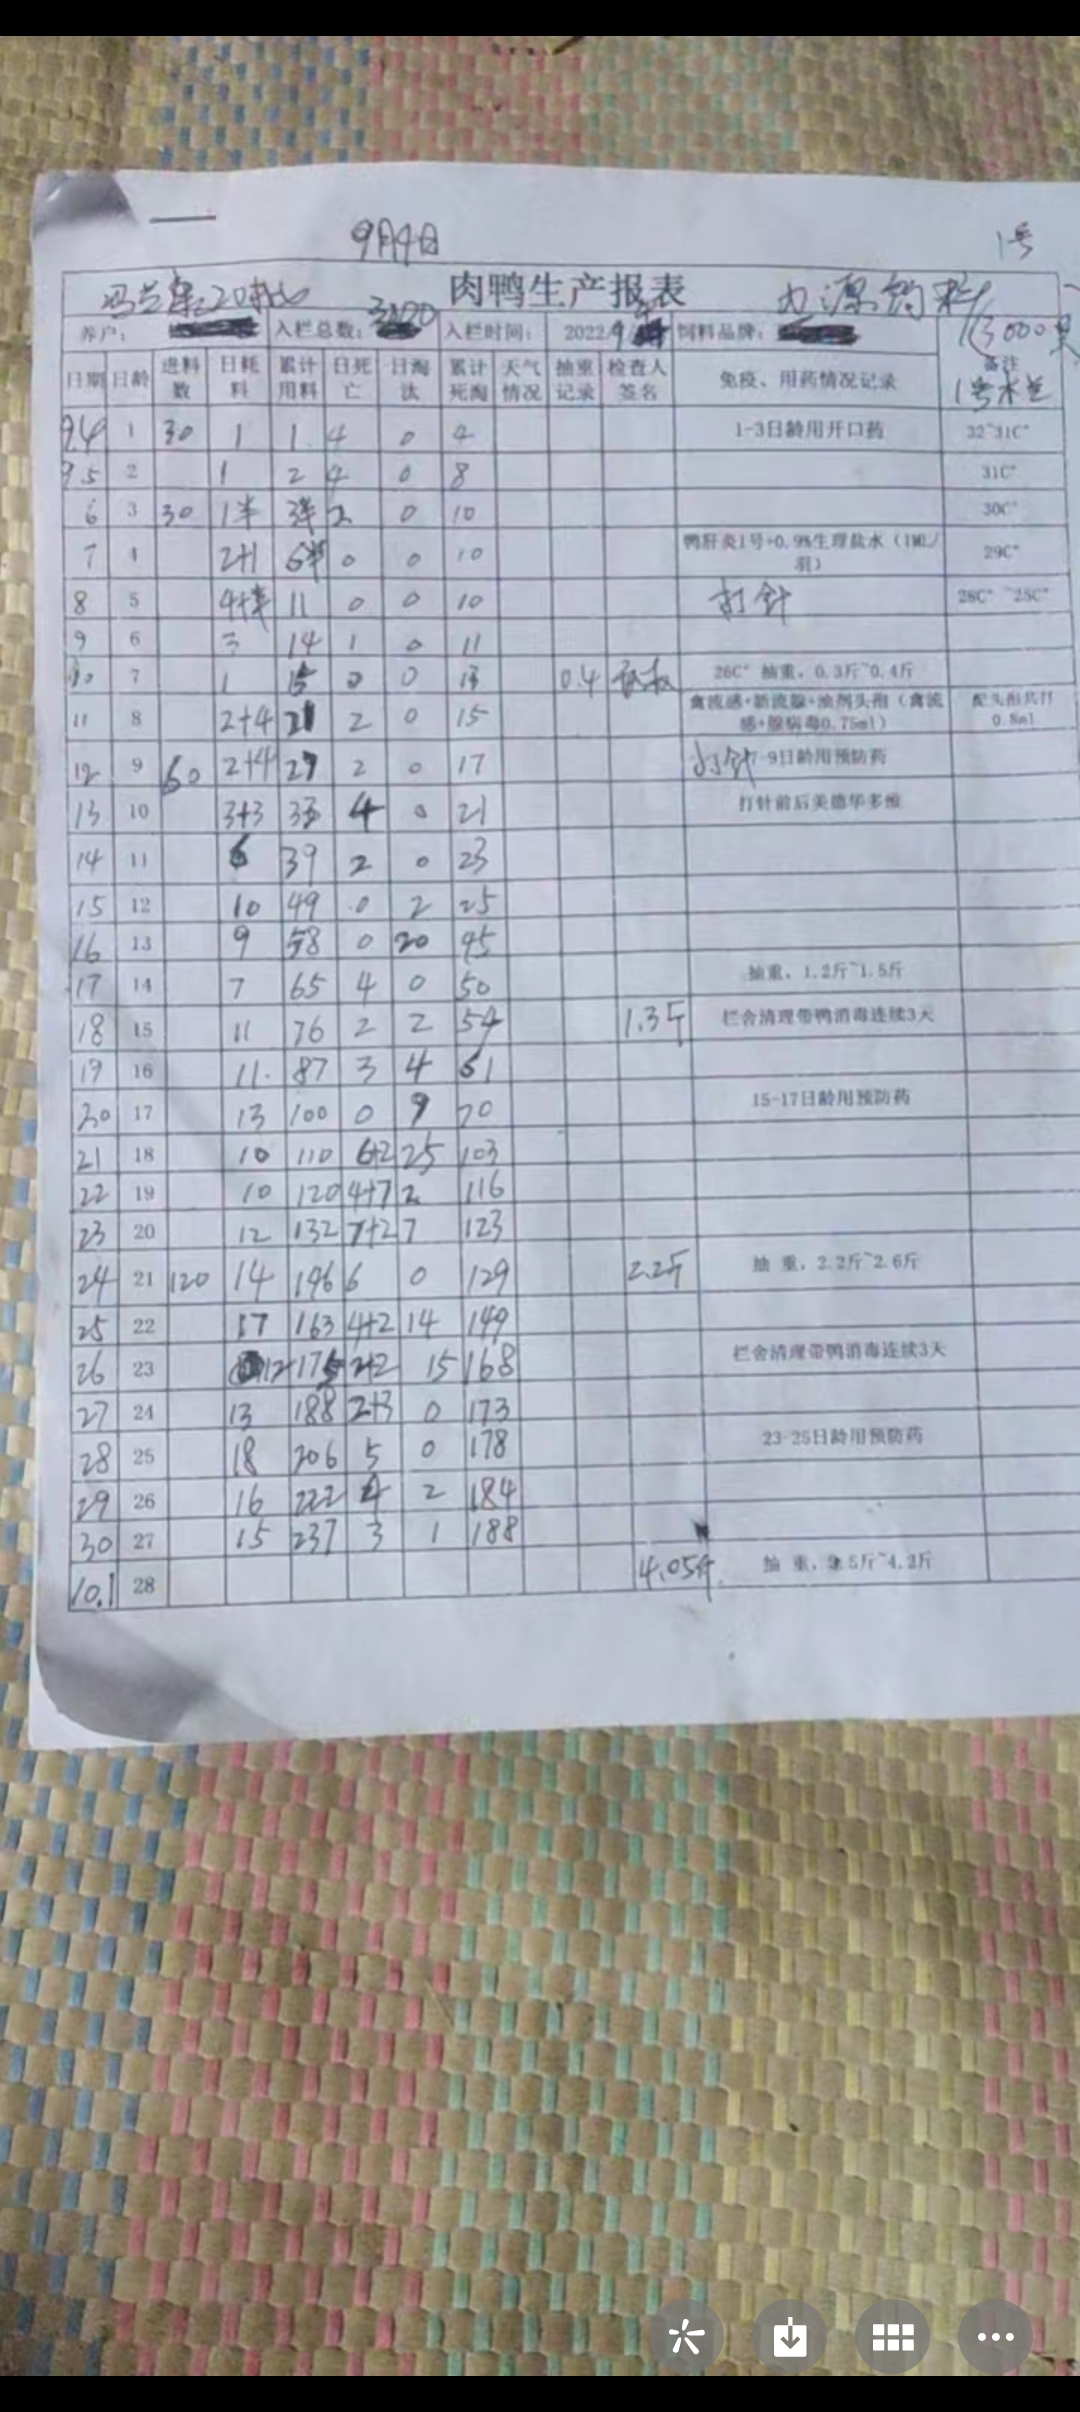 9月4日
1号
肉鸭生产报表
养户: 入栏总数: 入栏时间: 2022.9. 饲料品牌: 3000
日期 日龄 进料数 日耗料 累计用料 日死亡 日淘汰 累计死淘 天气情况 抽重记录 检查人签名 免疫、用药情况记录 备注
1号
9.4 1 30 1 1 4 0 4 1-3日龄用开口药 32~31C°
9.5 2 1 2 4 0 8 31C°
6 3 30 1半 3半 2 0 10 30C°
7 4 2+1 6半 0 0 10 鸭肝炎1号+0.9%生理盐水(1ML/羽) 29C°
8 5 4+半 11 0 0 10 打针 28C° ~25C°
9 6 3 14 1 0 11
10 7 1 15 0 13 0.4 26C° 抽重,0.3斤~0.4斤
11 8 2+4 21 2 0 15 禽流感+新流腺+油剂头孢(禽流感+腺病毒0.75ml) 配头孢共打0.8ml
12 9 60 2+4 27 2 0 17 打针 7-9日龄用预防药
13 10 3+3 33 4 0 21 打针前后美德华多维
14 11 6 39 2 0 23
15 12 10 49 0 2 25
16 13 9 58 0 20 45
17 14 7 65 4 0 50 抽重,1.2斤~1.5斤
18 15 11 76 2 2 54 1.3斤 栏舍清理带鸭消毒连续3天
19 16 11 87 3 4 61
20 17 13 100 0 9 70 15-17日龄用预防药
21 18 10 110 6+2 25 103
22 19 10 120 4+7 2 116
23 20 12 132 7+2 7 123
24 21 120 14 146 6 0 129 2.2斤 抽 重,2.2斤~2.6斤
25 22 17 163 4+2 14 149
26 23 12 175 2+2 15 168 栏舍清理带鸭消毒连续3天
27 24 13 188 2+3 0 173
28 25 18 206 5 0 178 23-25日龄用预防药
29 26 16 222 4 2 184
30 27 15 237 3 1 188
10.1 28 4.05斤 抽 重, 5斤~4.2斤